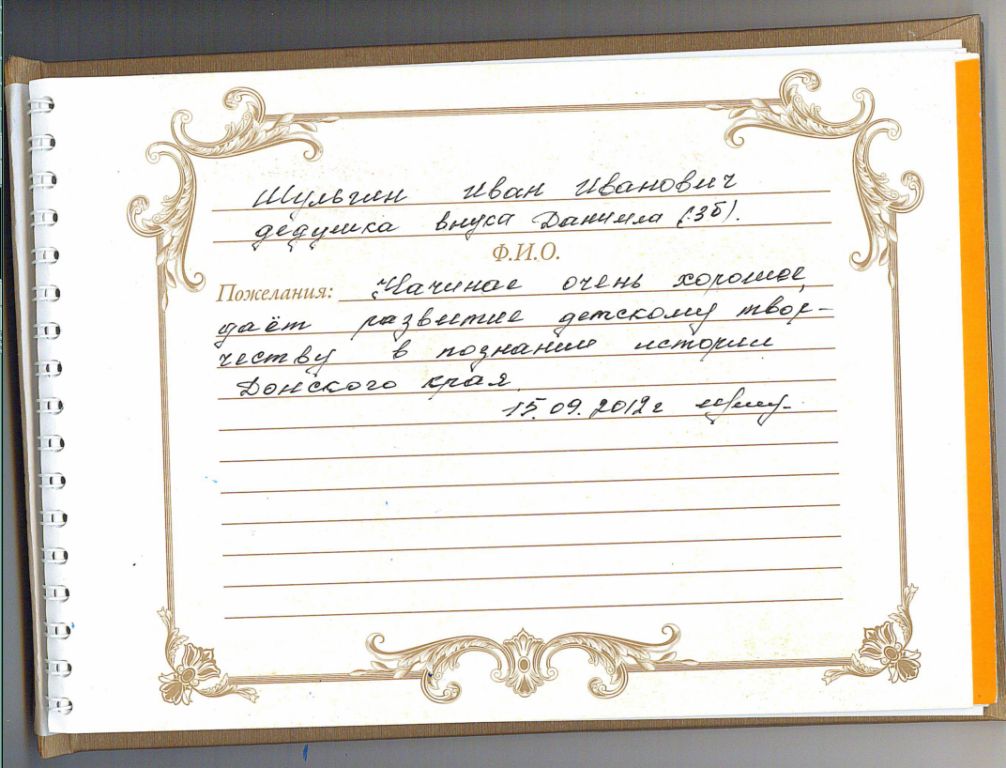 Шульгин Иван Иванович
дедушка внука Даниила (3б).
Ф.И.О.
Пожелания: Начинае очень хорошое,
даёт развитие детскому твор-
честву в познание истории
Донского края.
15.09.2012г